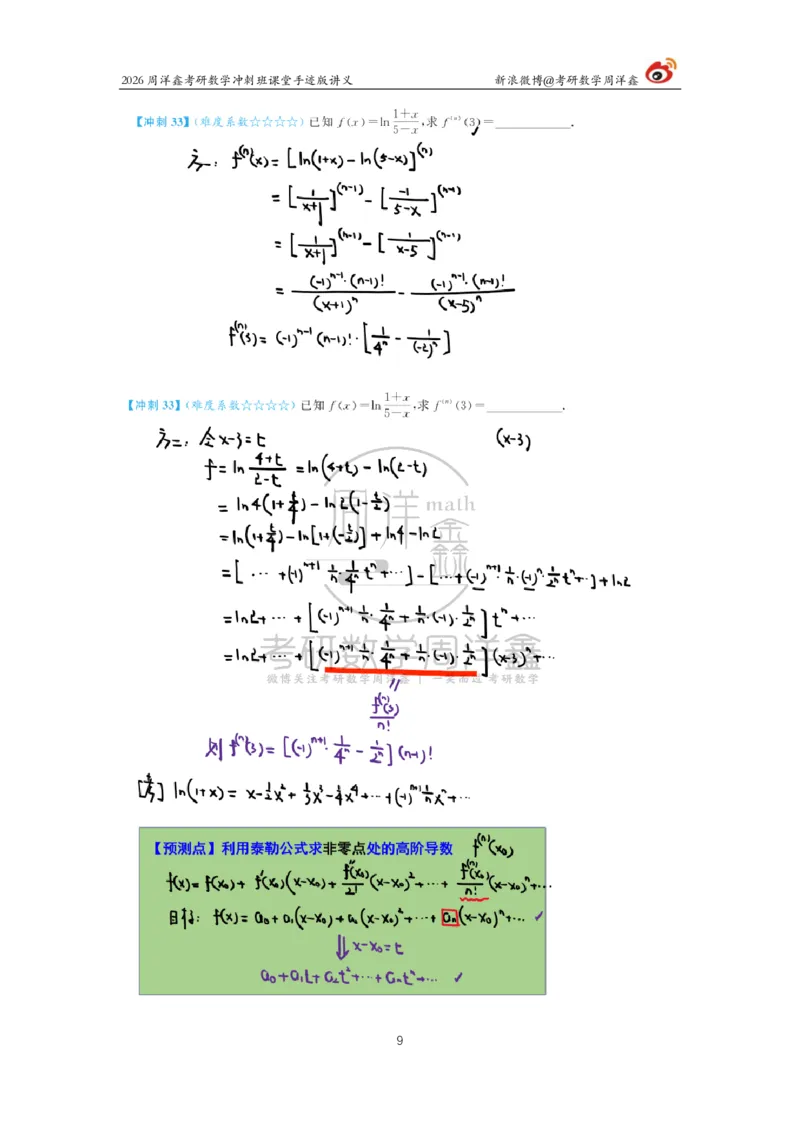 2026 周洋鑫考研数学冲刺班课堂手迹版讲义 新浪微博@考研数学周洋鑫
【冲刺 33】(难度系数☆☆☆☆) 已知 f(x)=ln (1+x)/(5−x) ,求 f⁽ⁿ⁾(3)=____________.
方一: f⁽ⁿ⁾(x) = [ln(1+x) − ln(5−x)]⁽ⁿ⁾
= [1/(x+1)]⁽ⁿ⁻¹⁾ − [−1/(5−x)]⁽ⁿ⁻¹⁾
= [1/(x+1)]⁽ⁿ⁻¹⁾ − [1/(x−5)]⁽ⁿ⁻¹⁾
= (−1)ⁿ⁻¹·(n−1)!/(x+1)ⁿ − (−1)ⁿ⁻¹·(n−1)!/(x−5)ⁿ
f⁽ⁿ⁾(3) = (−1)ⁿ⁻¹(n−1)!·[1/4ⁿ − 1/(−2)ⁿ]
【冲刺 33】(难度系数☆☆☆☆) 已知 f(x)=ln (1+x)/(5−x) ,求 f⁽ⁿ⁾(3)=____________.
方二: 令 x−3=t (x−3)
f = ln (4+t)/(2−t) = ln(4+t) − ln(2−t)
= ln4(1+t/4) − ln2(1−t/2)
= ln(1+t/4) − ln[1+(−t/2)] + ln4 − ln2
= [··· + (−1)ⁿ⁺¹ 1/n · 1/4ⁿ tⁿ + ···] − [··· + (−1)ⁿ⁺¹ · 1/n · (−1)ⁿ · 1/2ⁿ tⁿ + ···] + ln2
= ln2 + ··· + [(−1)ⁿ⁺¹ 1/n · 1/4ⁿ + 1/n · (−1) · 1/2ⁿ] tⁿ + ···
= ln2 + ··· + [(−1)ⁿ⁺¹ 1/n · 1/4ⁿ + 1/n · (−1) · 1/2ⁿ] (x−3)ⁿ + ···
=
f⁽ⁿ⁾(3)/n!
则 f⁽ⁿ⁾(3) = [(−1)ⁿ⁺¹ · 1/4ⁿ − 1/2ⁿ] (n−1)!
ln(1+x) = x − 1/2 x² + 1/3 x³ − 1/4 x⁴ + ··· + (−1)ⁿ⁺¹ 1/n xⁿ + ···
【预测点】利用泰勒公式求非零点处的高阶导数 f⁽ⁿ⁾(x₀)
f(x) = f(x₀) + f′(x₀)(x−x₀) + f″(x₀)/2! (x−x₀)² + ··· + f⁽ⁿ⁾(x₀)/n! (x−x₀)ⁿ + ···
目标: f(x) = a₀ + a₁(x−x₀) + a₂(x−x₀)² + ··· + aₙ(x−x₀)ⁿ + ··· ✓
⇓ x−x₀=t
a₀ + a₁t + a₂t² + ··· + aₙtⁿ + ··· ✓
周洋鑫 math
考研数学周洋鑫
微博关注考研数学周洋鑫 | 一笑而过 考研数学
9